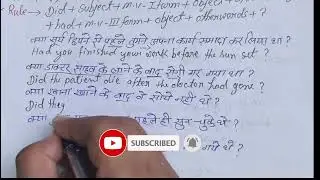 Rule → Did + Subject + m.v - I form + object + otherwords +
+ had + m.v - III form + object + otherwords + ?
क्या सूर्य छिपने से पहले तुमने अपना कार्य समाप्त कर लिया था ?
Had you finished your work before the sun set ?
क्या डॉक्टर साहब के जाने के बाद रोगी मर गया था ?
Did the patient die after the doctor had gone ?
क्या खाना खाने के बाद वे सोये नहीं थे ?
Did they
क्या पहले ही सुन चुके थे ?
थे ?
SUBSCRIBE